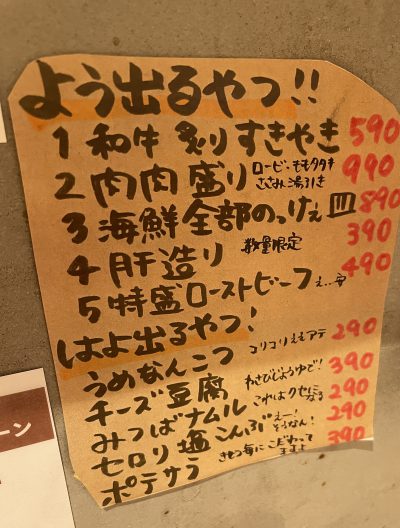 よう出るやつ!!
1 和牛 炙りすきやき 590
2 肉肉盛り ロービー・ももタタキ ささみ湯引き 990
3 海鮮全部のっけぇ皿 890
4 肝造り 数量限定 390
5 特盛ローストビーフ え、、安 490
はよ出るやつ!
うめなんこつ コリコリええアテ 290
チーズ豆腐 わさびじょうゆで! 390
みつばナムル これはクセになる 290
セロリ塩こんぶ えー!そうなん! 290
ポテサラ きせつ毎にこだわってます 390
ーン